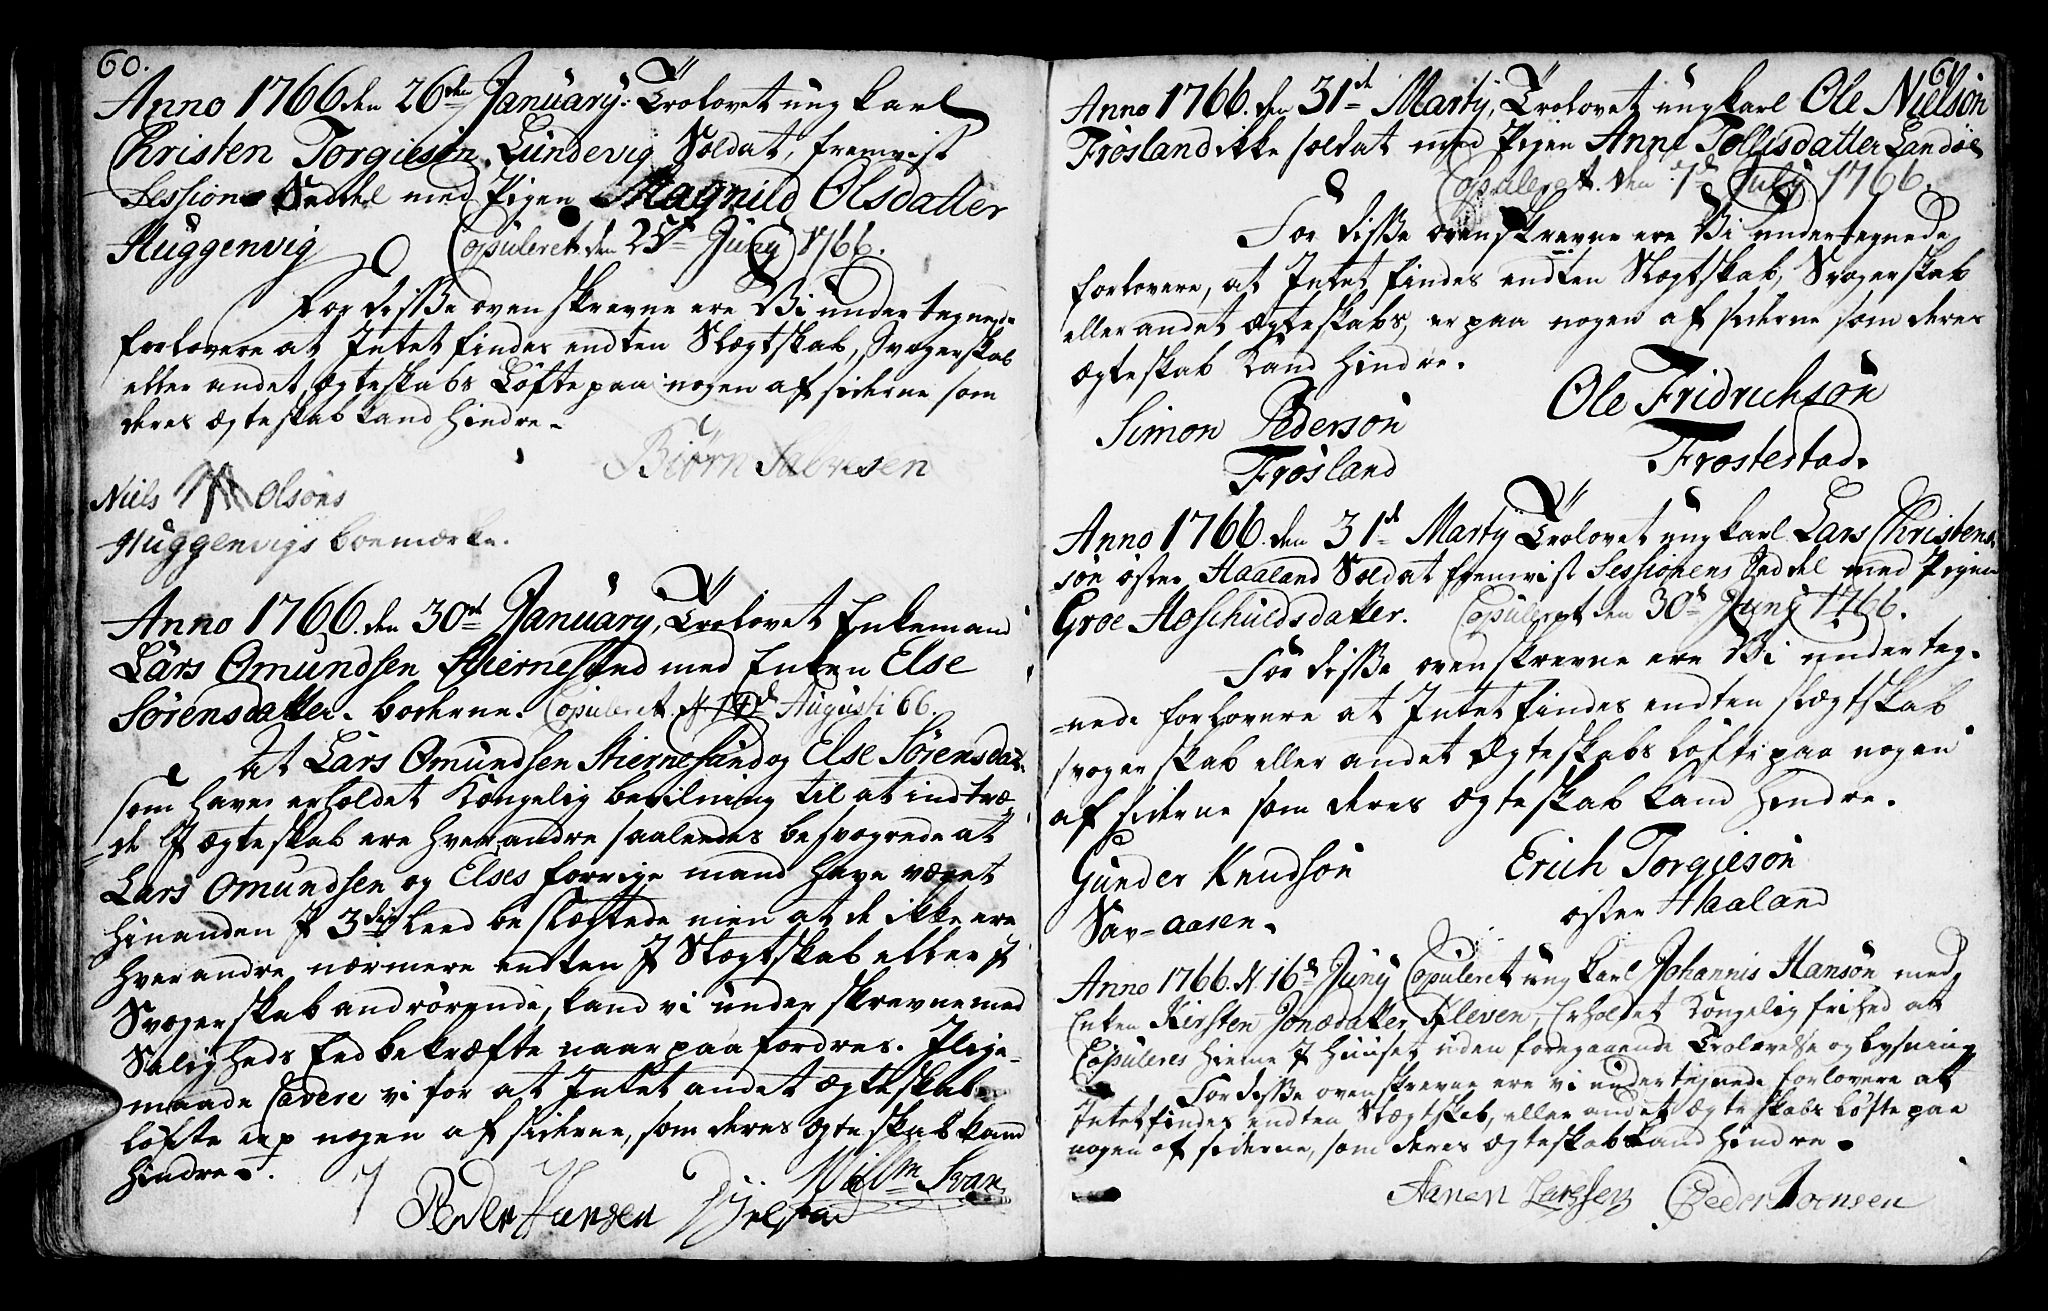 60.
Anno 1766 den 26den January: Trolovet ung karl
Christen Torgiesøn Lundevig Soldat, fremvist
Sessions Seddel med Pigen Magnild Olsdatter
Huggenvig Copuleret den 25de Juny 1766.
For disse oven skrevne ere Vi under tegnede
forlovere at Intet findes endten Slægtskab, Svogerskab
eller andet Ægteskabs Løfte paa nogen af siderne som
deres Ægteskab kand hindre.
Biørn Salvesen
Niels Olsøns
Huggenvigs boemærke.
Anno 1766. den 30de January, Trolovet Enkemand
Lars Omundsen Stiernesund med Enken Else
Sørensdatter. boderne. Copuleret d 14de Augusti 66.
At Lars Omundsen Stiernesund og Else Sørensdat.
som haver erholdet Kongelig bevilning til at indtræ-
=de J Ægteskab ere hverandre saaledes besvogrede at
Lars Omundsen og Elses forrige mand have været
hinanden J 3die Leed beslægtede men at de ikke ere
hverandre nærmere endten J Slægtskab eller J
Svogerskab andrørende, kand vi under skrevne med
Saligheds Eed bekræfte naar paa fordres. Jlige-
maade Cavere vi for at Intet andet Ægteskabs
løfte er p nogen af siderne, som deres Ægteskab kand
hindre.
Willm Svan
Peder Hansen
Anno 1766. den 31de Marty, Trolovet ung karl Ole Nielsøn
Frøsland ikke soldat med Pigen Anne Tollisdatter Landøe
Copuleret. den 7de July 1766.
For disse ovenskrevne ere Vi undertegnede
forlovere, at Intet findes endten Slægtskab, Svogerskab
eller andet Ægteskabs, er paa nogen af siderne som deres
Ægteskab kand hindre.
Ole Fridrichsøn
Simon Pedersøn
Frostestad.
Frøsland
Anno 1766. den 31de Marty Trolovet ung karl Lars Christen-
søn øster Haaland Soldat fremvist Sessionens Seddel med Pigen
Groe Aoschuldsdatter. Copuleret den 30de Juny 1766.
For disse ovenskrevne ere Vi underteg-
=nede forlovere at Intet findes endten slægtskab
svogerskab eller andet Ægteskabs løfte paa nogen
af siderne som deres Ægteskab kand hindre.
Gunder Knudsøn
Erich Torgiesøn
Sav-aasen.
øster Haaland
Anno 1766. d. 16de Juny Copuleret ung karl Johannis Hansøn med
Enken Kirsten Jonsdatter Kleven, Erholdet Kongelig frihed at
Copuleres hieme J Huuset uden foregaaende Trolovelse og lysning
For disse ovenskrevne ere vi undertegnede forlovere at
Intet findes endten Slægtskab, eller andet Ægteskabs løfte paa
nogen af siderne, som deres Ægteskab kand hindre.
Aanen Larssen Peder Joensen